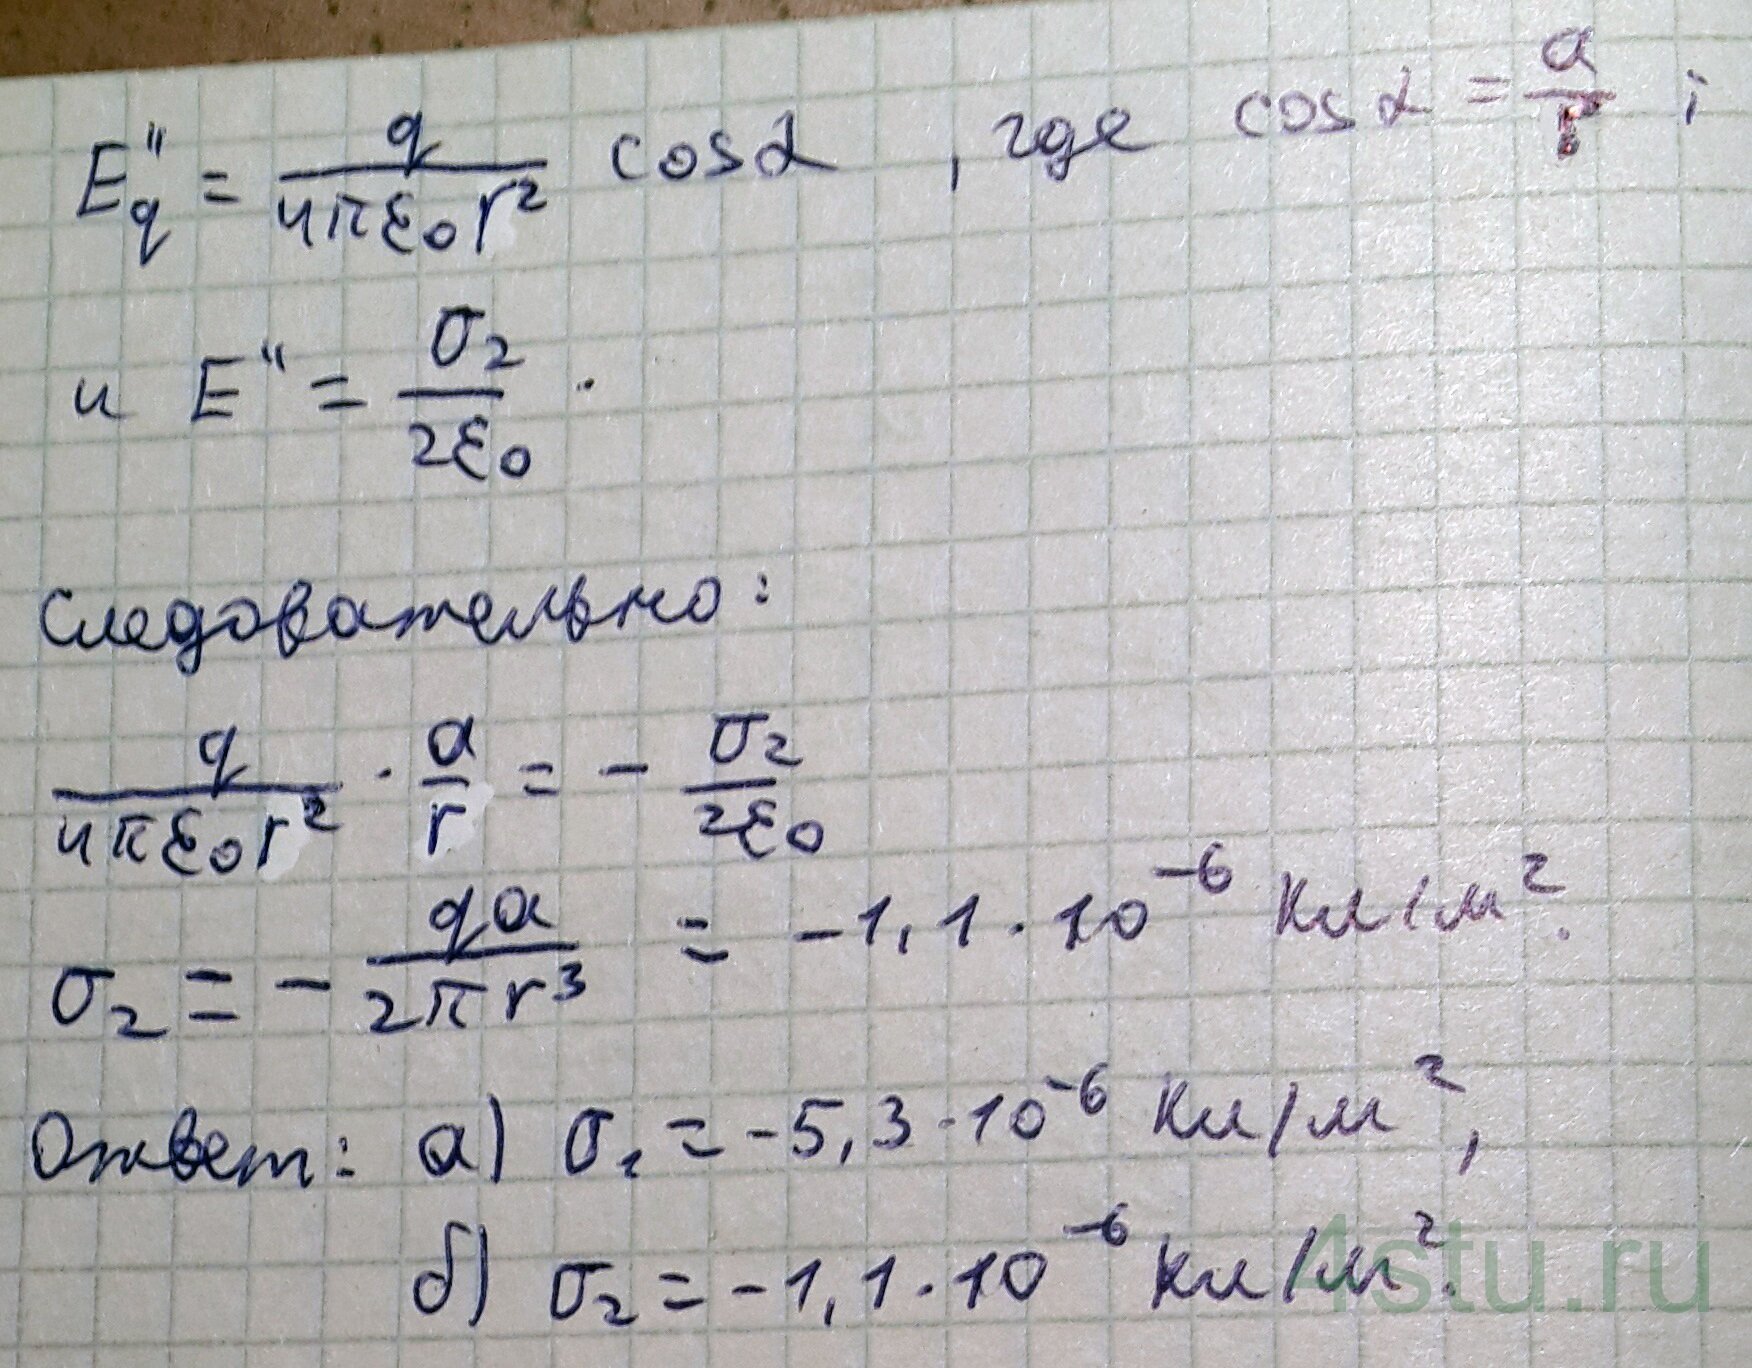 E″q = q/(4πε₀r²) cosα , где cosα = a/r ;
и E″ = σ₂/(2ε₀) .
Следовательно:
q/(4πε₀r²) · a/r = - σ₂/(2ε₀)
σ₂ = - qa/(2πr³) = -1,1·10⁻⁶ Кл/м².
Ответ: а) σ₁ = -5,3·10⁻⁶ Кл/м²,
б) σ₂ = -1,1·10⁻⁶ Кл/м².
4stu.ru